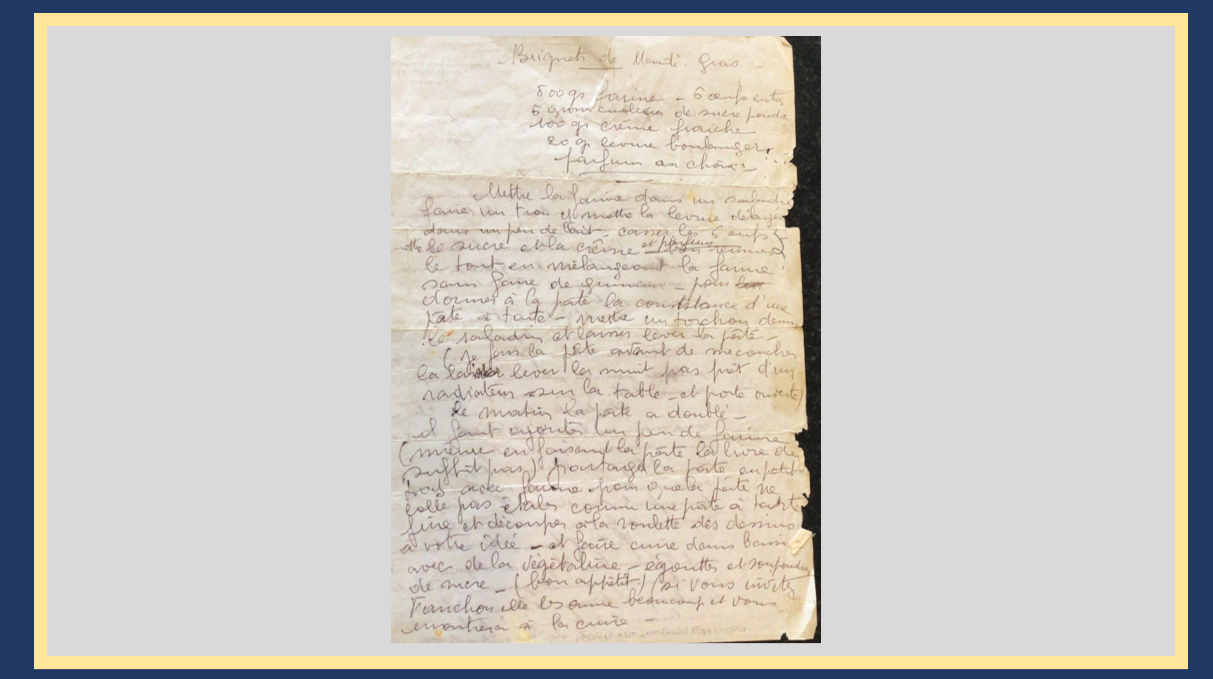 Beignets de Mardi-Gras -
500 gs farine - 6 oeufs entiers
5 grosses cuillères de sucre poudre
100 gs crème fraîche
20 gs levure boulanger
parfum au choix
Mettre la farine dans un saladier
faire un trou y mettre la levure délayée
dans un peu de lait - casser les 6 oeufs
mettre le sucre et la crème et parfums - bien remuer
le tout en mélangeant la farine
sans faire de grumeaux - pour
donner à la pâte la consistance d'une
pâte à tarte - mettre un torchon dessus
le saladier et laisser lever la pâte -
(je fais la pâte avant de me coucher
la laisser lever la nuit pas prêt d'un
radiateur sur la table - et porte ouverte)
le matin la pâte a doublé -
il faut ajouter un peu de farine
(même en faisant la pâte la livre ne
suffit pas) partager la pâte en petits
avec farine pour que la pâte ne
colle pas étaler comme une pâte à tarte
fine et découper à la roulette des dessins
à votre idée - et faire cuire dans bassine
avec de la végétaline - égoutter et soupoudrer
de sucre - (bon appétit) si vous invitez
Fanchon elle les aime beaucoup et vous
montrera à les cuire -